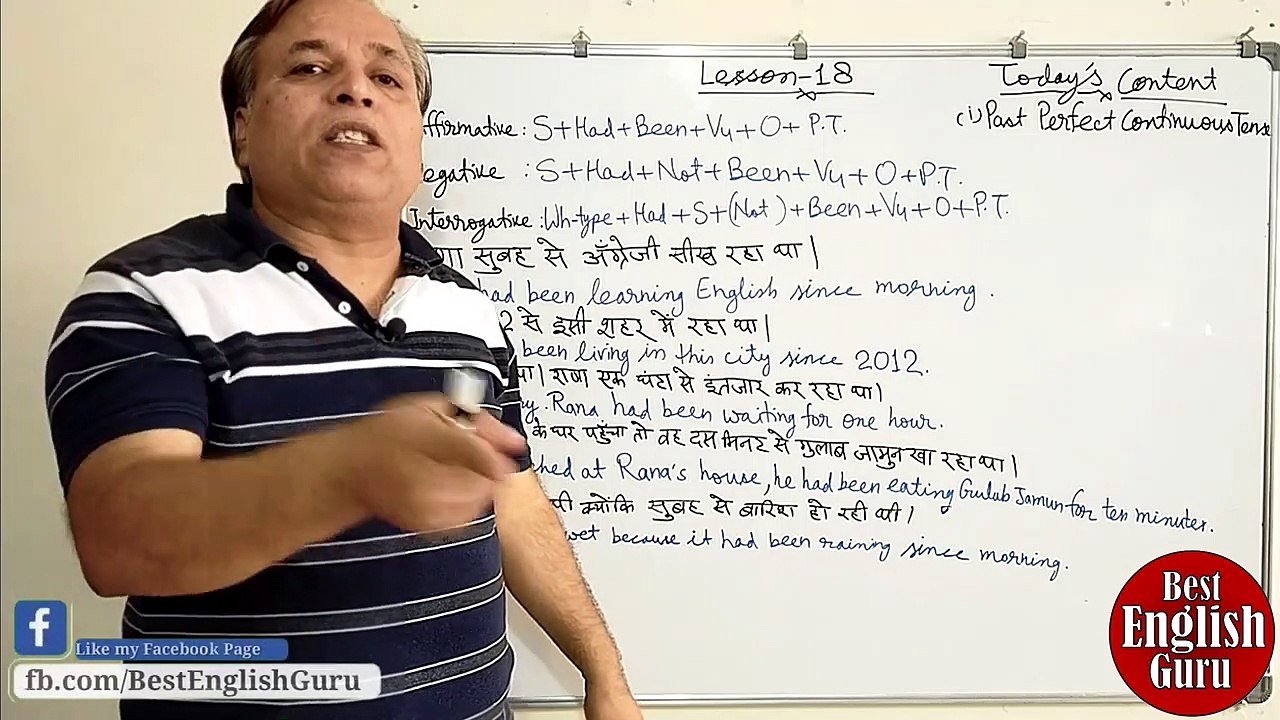 Lesson-18
Today's Content
(i) Past Perfect Continuous Tense
ffirmative: S+Had+Been+V4+O+P.T.
egative : S+Had+Not+Been+V4+O+P.T.
Interrogative: Wh-type+Had+S+(Not)+Been+V4+O+P.T.
सुबह से अँग्रेजी सीख रहा था।
had been learning English since morning.
2 से इसी शहर में रहा था।
been living in this city since 2012.
था। राणा एक घंटा से इंतजार कर रहा था।
Rana had been waiting for one hour.
के घर पहुँचा तो वह दस मिनट से गुलाब जामुन खा रहा था।
ched at Rana's house, he had been eating Gulab Jamun for ten minutes.
थी क्योंकि सुबह से बारिश हो रही थी।
wet because it had been raining since morning.
f
Like my Facebook Page
fb.com/BestEnglishGuru
Best
English
Guru